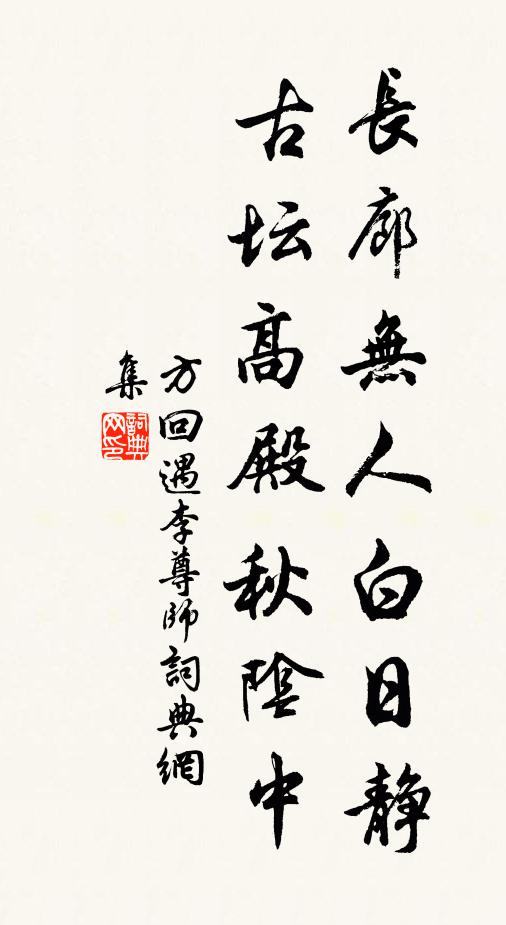 長廊無人白日静
古坛高殿秋陰中
方回遇李尊師詞典網
集
詞典
网印